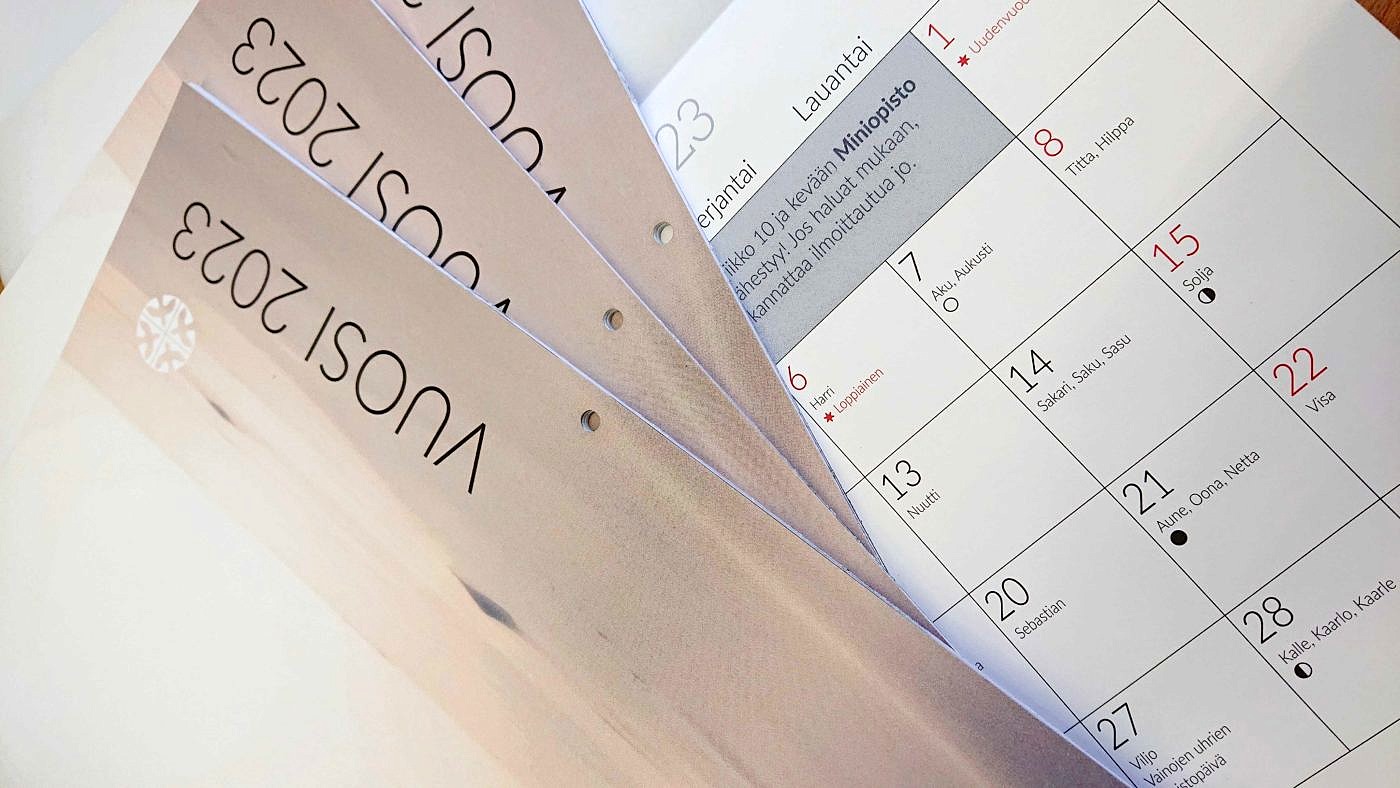 VUOSI 2023
VUOSI 2023
VUOSI 2
23
erjantai
Lauantai
iikko 10 ja kevään Miniopisto
ähestyy! Jos haluat mukaan,
kannattaa ilmoittautua jo.
1
8
Titta, Hilppa
6
Harri
Loppiainen
7
Aku, Aukusti
15
Solja
13
Nuutti
14
Sakari, Saku, Sasu
22
Visa
20
Sebastian
21
Aune, Oona, Netta
27
Viljo
Vainojen uhrien
istopäivä
28
Kalle, Kaarlo, Kaarle
a